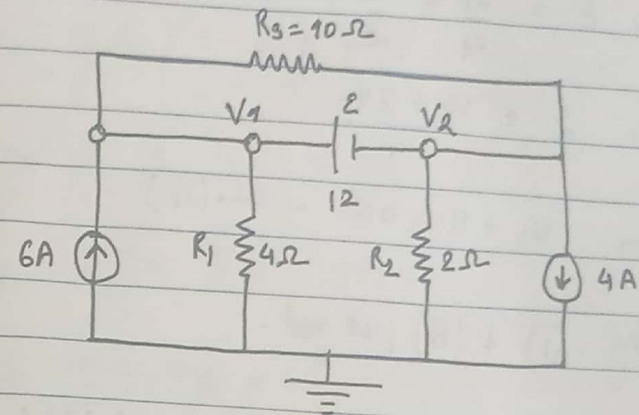 R3=10Ω
V1
2
V2
12
6A
R1
4Ω
R2
2Ω
4A